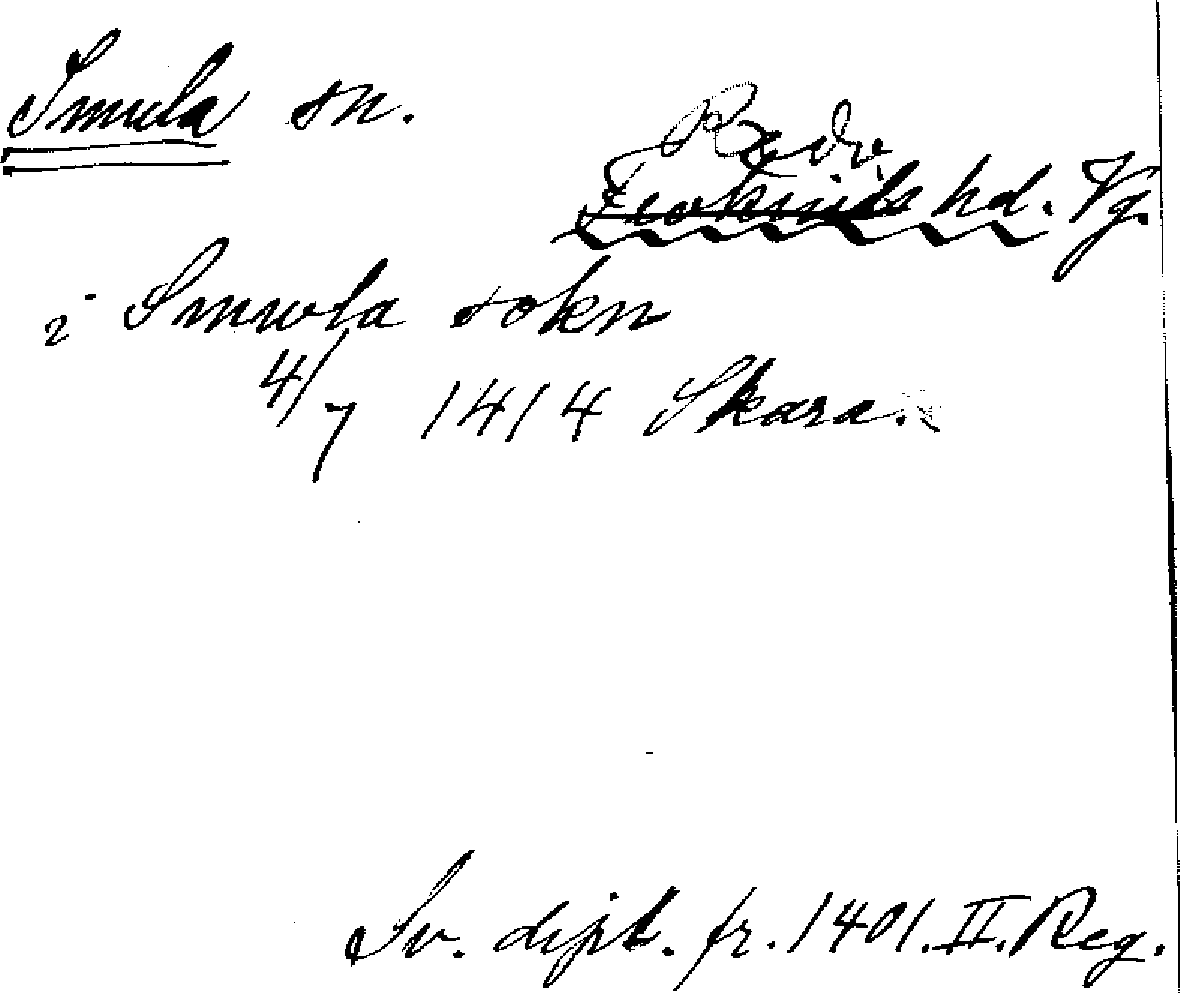 Smula sn.
Redv.
Frökinds hd. Vg.
i Smwla sokn
4/7 1414 Skara.
Sv. dipl. fr. 1401. II. Reg.